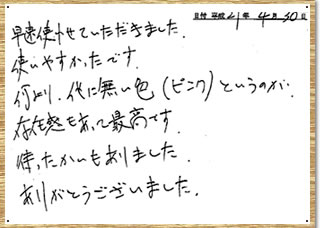 日付 平成 21年 4月 30日
早速使わせていただきました。
使いやすかったです。
何より、他に無い色(ピンク)というのが、
存在感もあって最高です。
待ったかいもありました。
ありがとうございました。